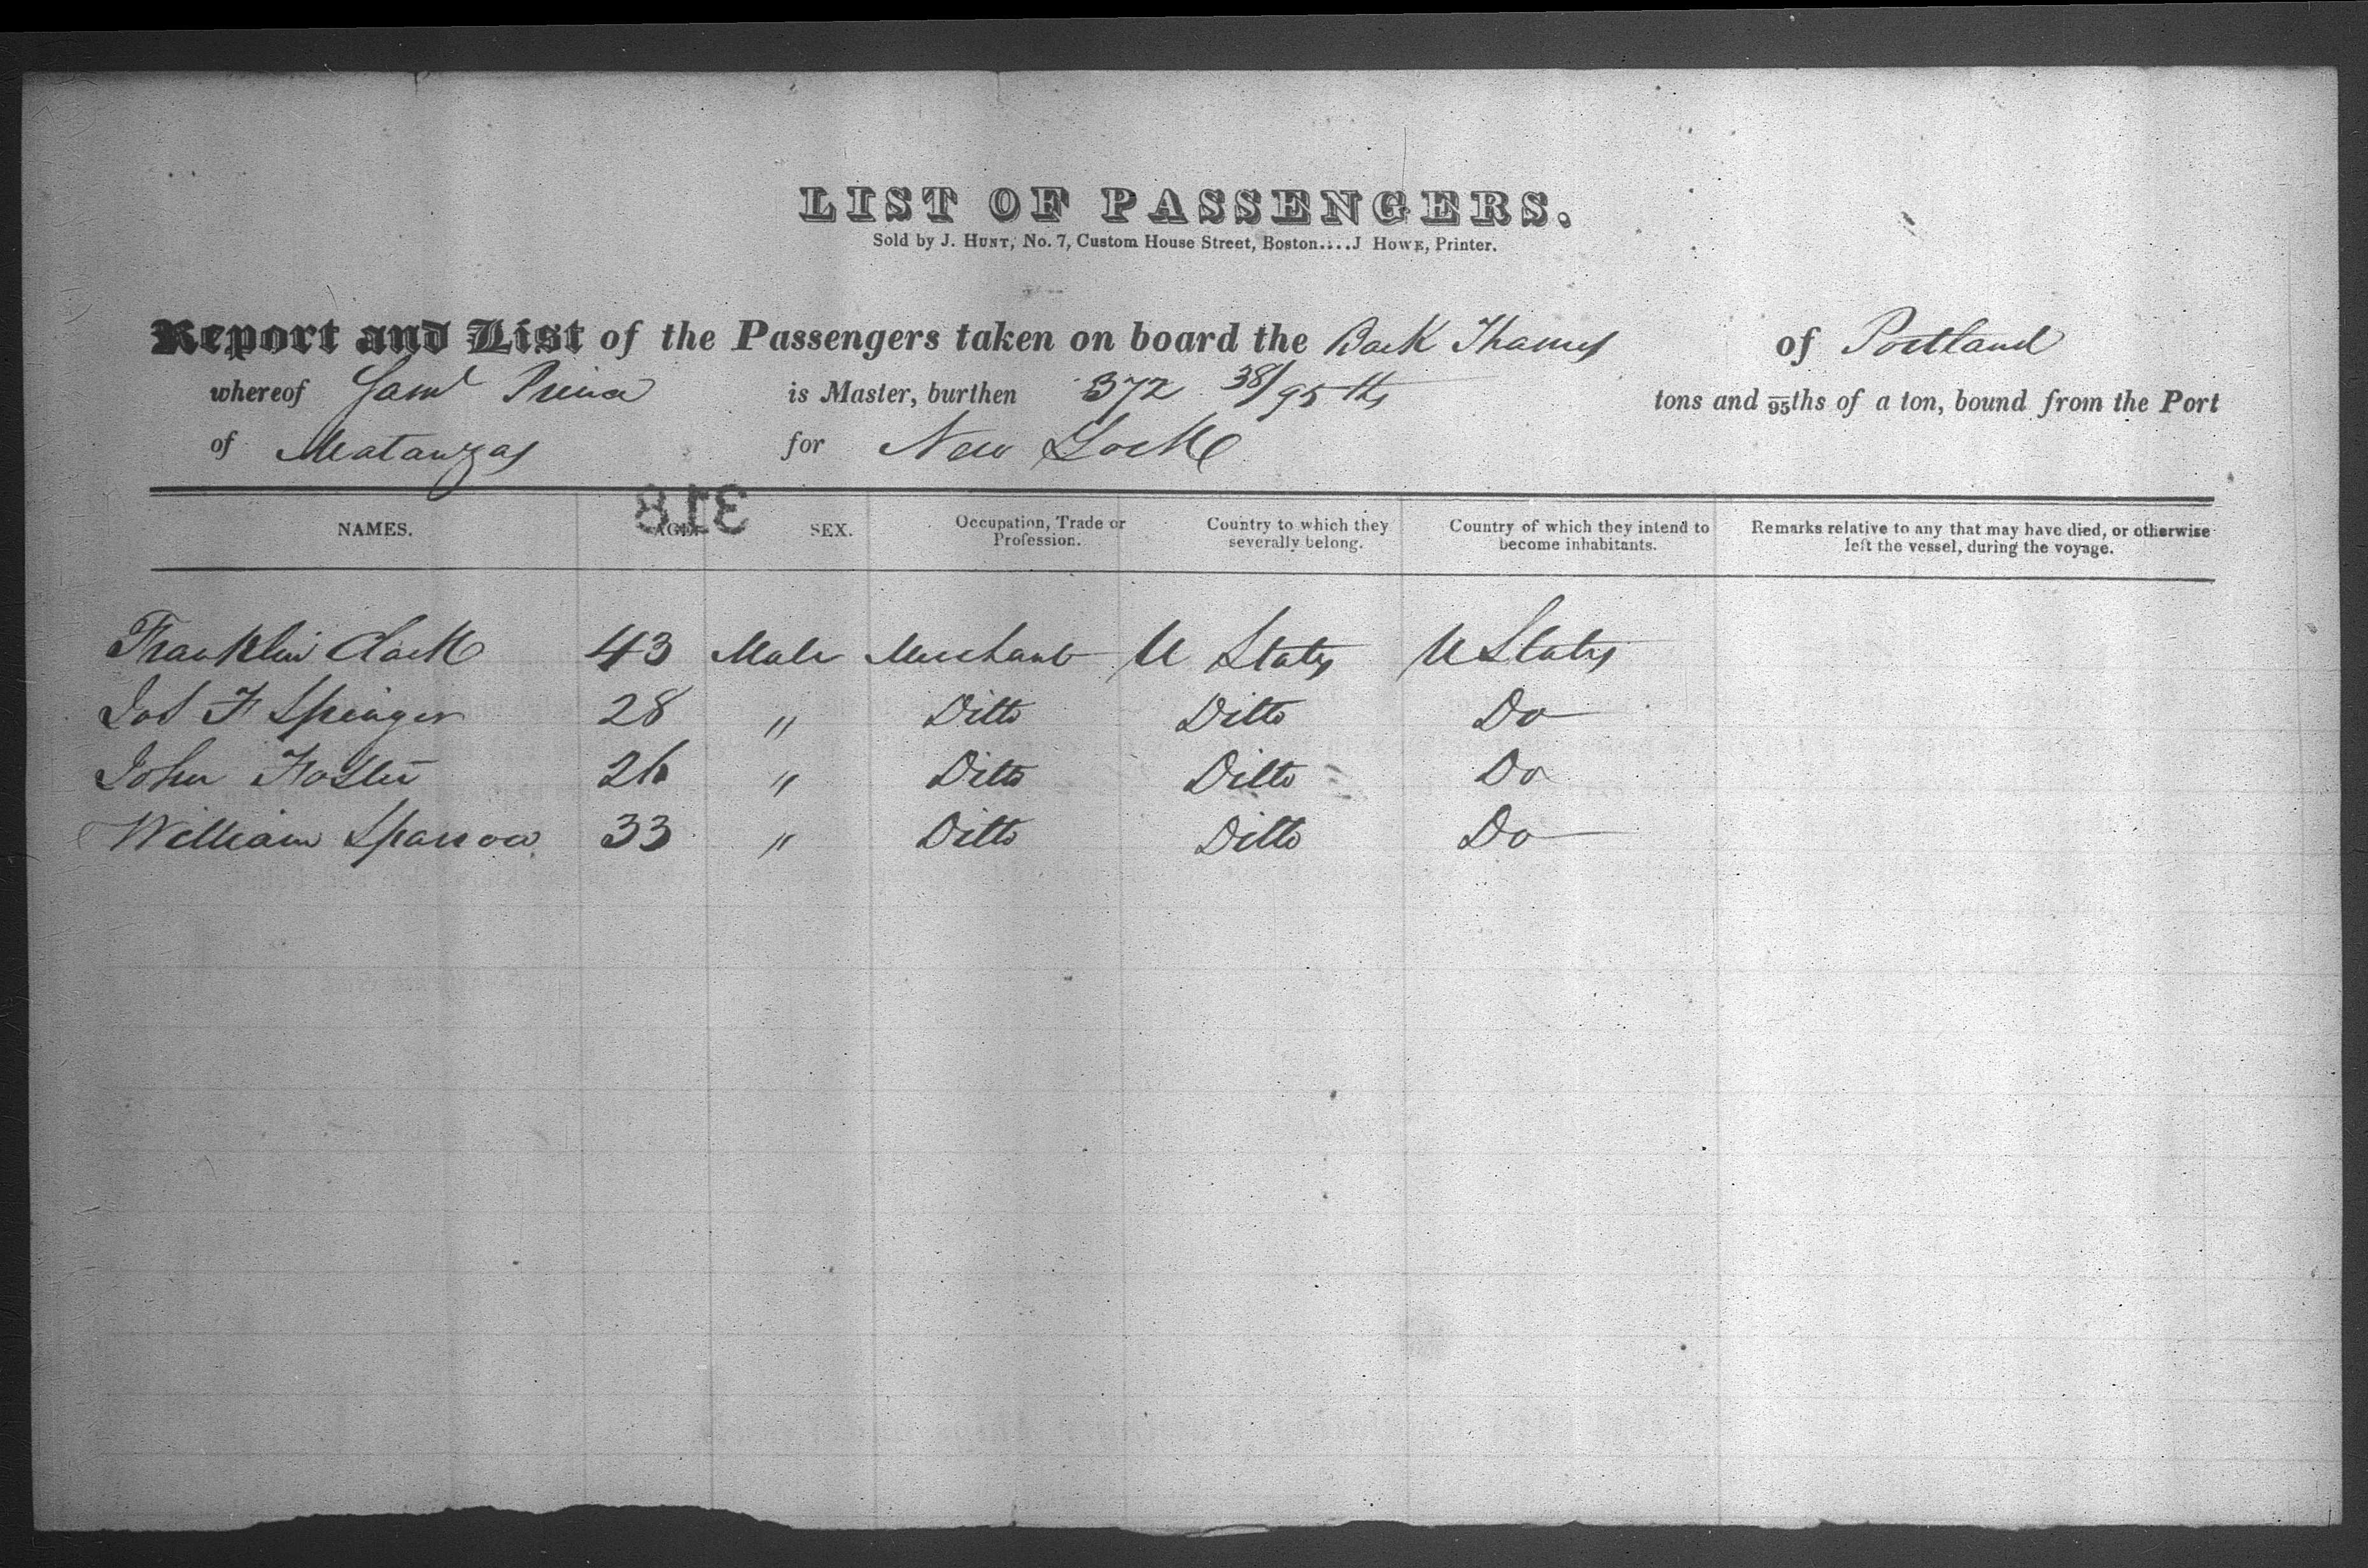 LIST OF PASSENGERS.
Sold by J. HUNT, No. 7, Custom House Street, Boston....J HOWE, Printer.
Report and List of the Passengers taken on board the Bark Thames of Portland
whereof Saml Prince is Master, burthen 372 38/95ths tons and 95ths of a ton, bound from the Port
of Matanzas for New York
318
NAMES. AGE. SEX. Occupation, Trade or Profession. Country to which they severally belong. Country of which they intend to become inhabitants. Remarks relative to any that may have died, or otherwise left the vessel, during the voyage.
Franklin Clark 43 Male Merchant U States U States
Jos F Springer 28 " Ditto Ditto Do
John Foster 26 " Ditto Ditto Do
William Sparrow 33 " Ditto Ditto Do